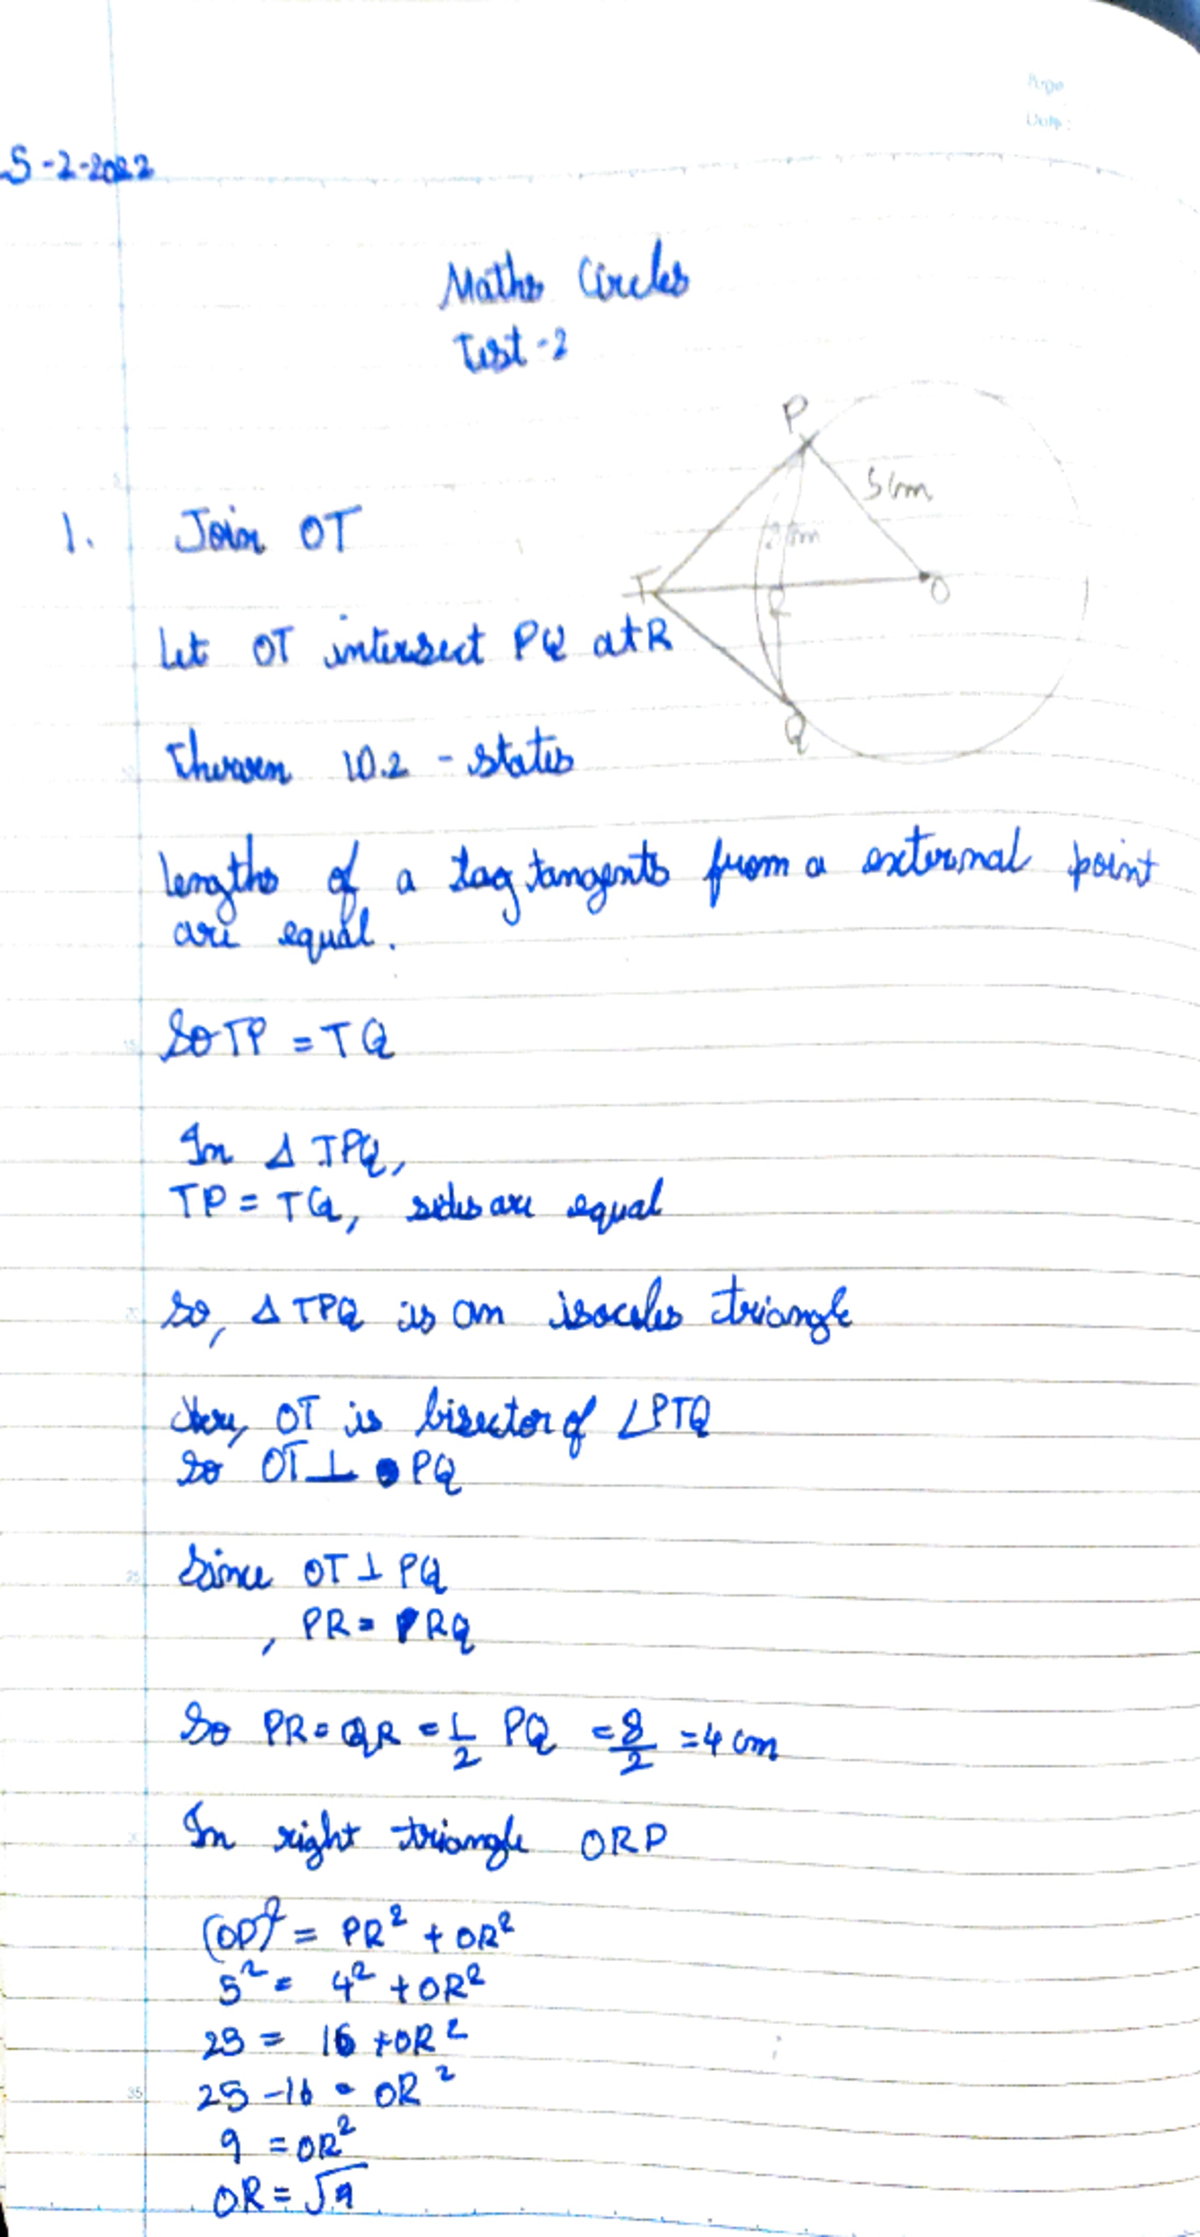 5-2-2022
Maths Circles
Test-2
P
5cm
1. Join OT
T
R
O
Let OT intersect PQ at R
Q
Theorem 10.2 - states
lengths of a tag tangents from a external point
are equal.
So TP = TQ
In Δ TPQ,
TP = TQ, sides are equal
So, Δ TPQ is an isoceles triangle
Here, OT is bisector of ∠PTQ
So OT ⊥ PQ
Since OT ⊥ PQ
, PR = RQ
So PR = QR = 1/2 PQ = 8/2 = 4 cm
In right triangle ORP
(OP)² = PR² + OR²
5² = 4² + OR²
25 = 16 + OR²
25 - 16 = OR²
9 = OR²
OR = √9